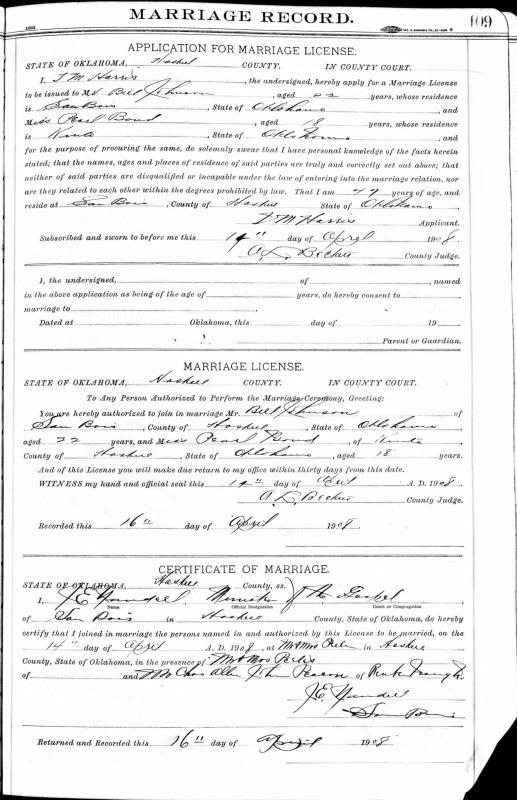 MARRIAGE RECORD. 109
APPLICATION FOR MARRIAGE LICENSE.
STATE OF OKLAHOMA, Haskell COUNTY. IN COUNTY COURT.
I, F M Harris, the undersigned, hereby apply for a Marriage License
to be issued to Mr. Bill Johnson, aged 22 years, whose residence
is San Bois, State of Oklahoma, and
Miss Pearl Bond, aged 18 years, whose residence
is Kinta, State of Oklahoma, and
for the purpose of procuring the same, do solemnly swear that I have personal knowledge of the facts herein
stated; that the names, ages and places of residence of said parties are truly and correctly set out above; that
neither of said parties are disqualified or incapable under the law of entering into the marriage relation, nor
are they related to each other within the degrees prohibited by law. That I am 49 years of age, and
reside at San Bois, County of Haskell State of Oklahoma
F M Harris Applicant.
Subscribed and sworn to before me this 14" day of April 1908.
A. L. Beckett County Judge.
I, the undersigned, of , named
in the above application as being of the age of years, do hereby consent to
marriage to
Dated at Oklahoma, this day of 19
Parent or Guardian.
MARRIAGE LICENSE.
STATE OF OKLAHOMA, Haskell COUNTY. IN COUNTY COURT.
To Any Person Authorized to Perform the Marriage Ceremony, Greeting:
You are hereby authorized to join in marriage Mr. Bill Johnson of
San Bois, County of Haskell, State of Oklahoma
aged 22 years, and Miss Pearl Bond, of Kinta
County of Haskell, State of Oklahoma, aged 18 years.
And of this License you will make due return to my office within thirty days from this date.
WITNESS my hand and official seal this 14" day of April A. D. 1908.
A. L. Beckett County Judge.
Recorded this 16" day of April 1908
CERTIFICATE OF MARRIAGE.
STATE OF OKLAHOMA, Haskell County, ss.
I, J E Minister of the Gospel
Name Official Designation Court or Congregation
of San Bois in Haskell County, State of Oklahoma, do hereby
certify that I joined in marriage the persons named in and authorized by this License to be married, on the
14" day of April A. D. 1908, at Mr & Mrs in Haskell
County, State of Oklahoma, in the presence of Mr & Mrs
of and Mr Chas Allen John of
J. E.
San Bois
Returned and Recorded this 16" day of April 1908